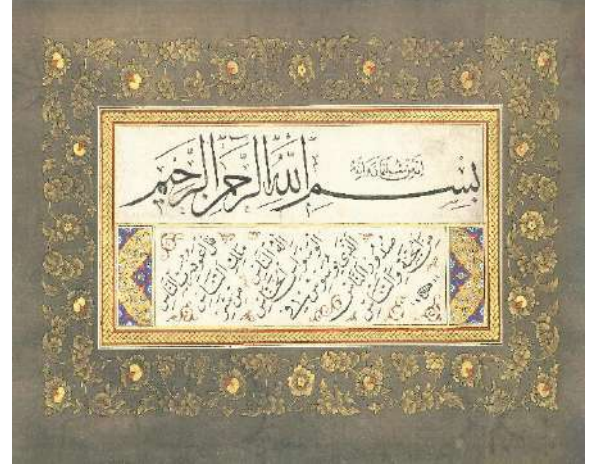 انه من سليمن وانه
بسم الله الرحمن الرحيم
قل اعوذ برب الناس
ملك الناس
اله الناس من شر
الوسواس الخناس
الذي يوسوس في
صدور الناس
من الجنة والناس